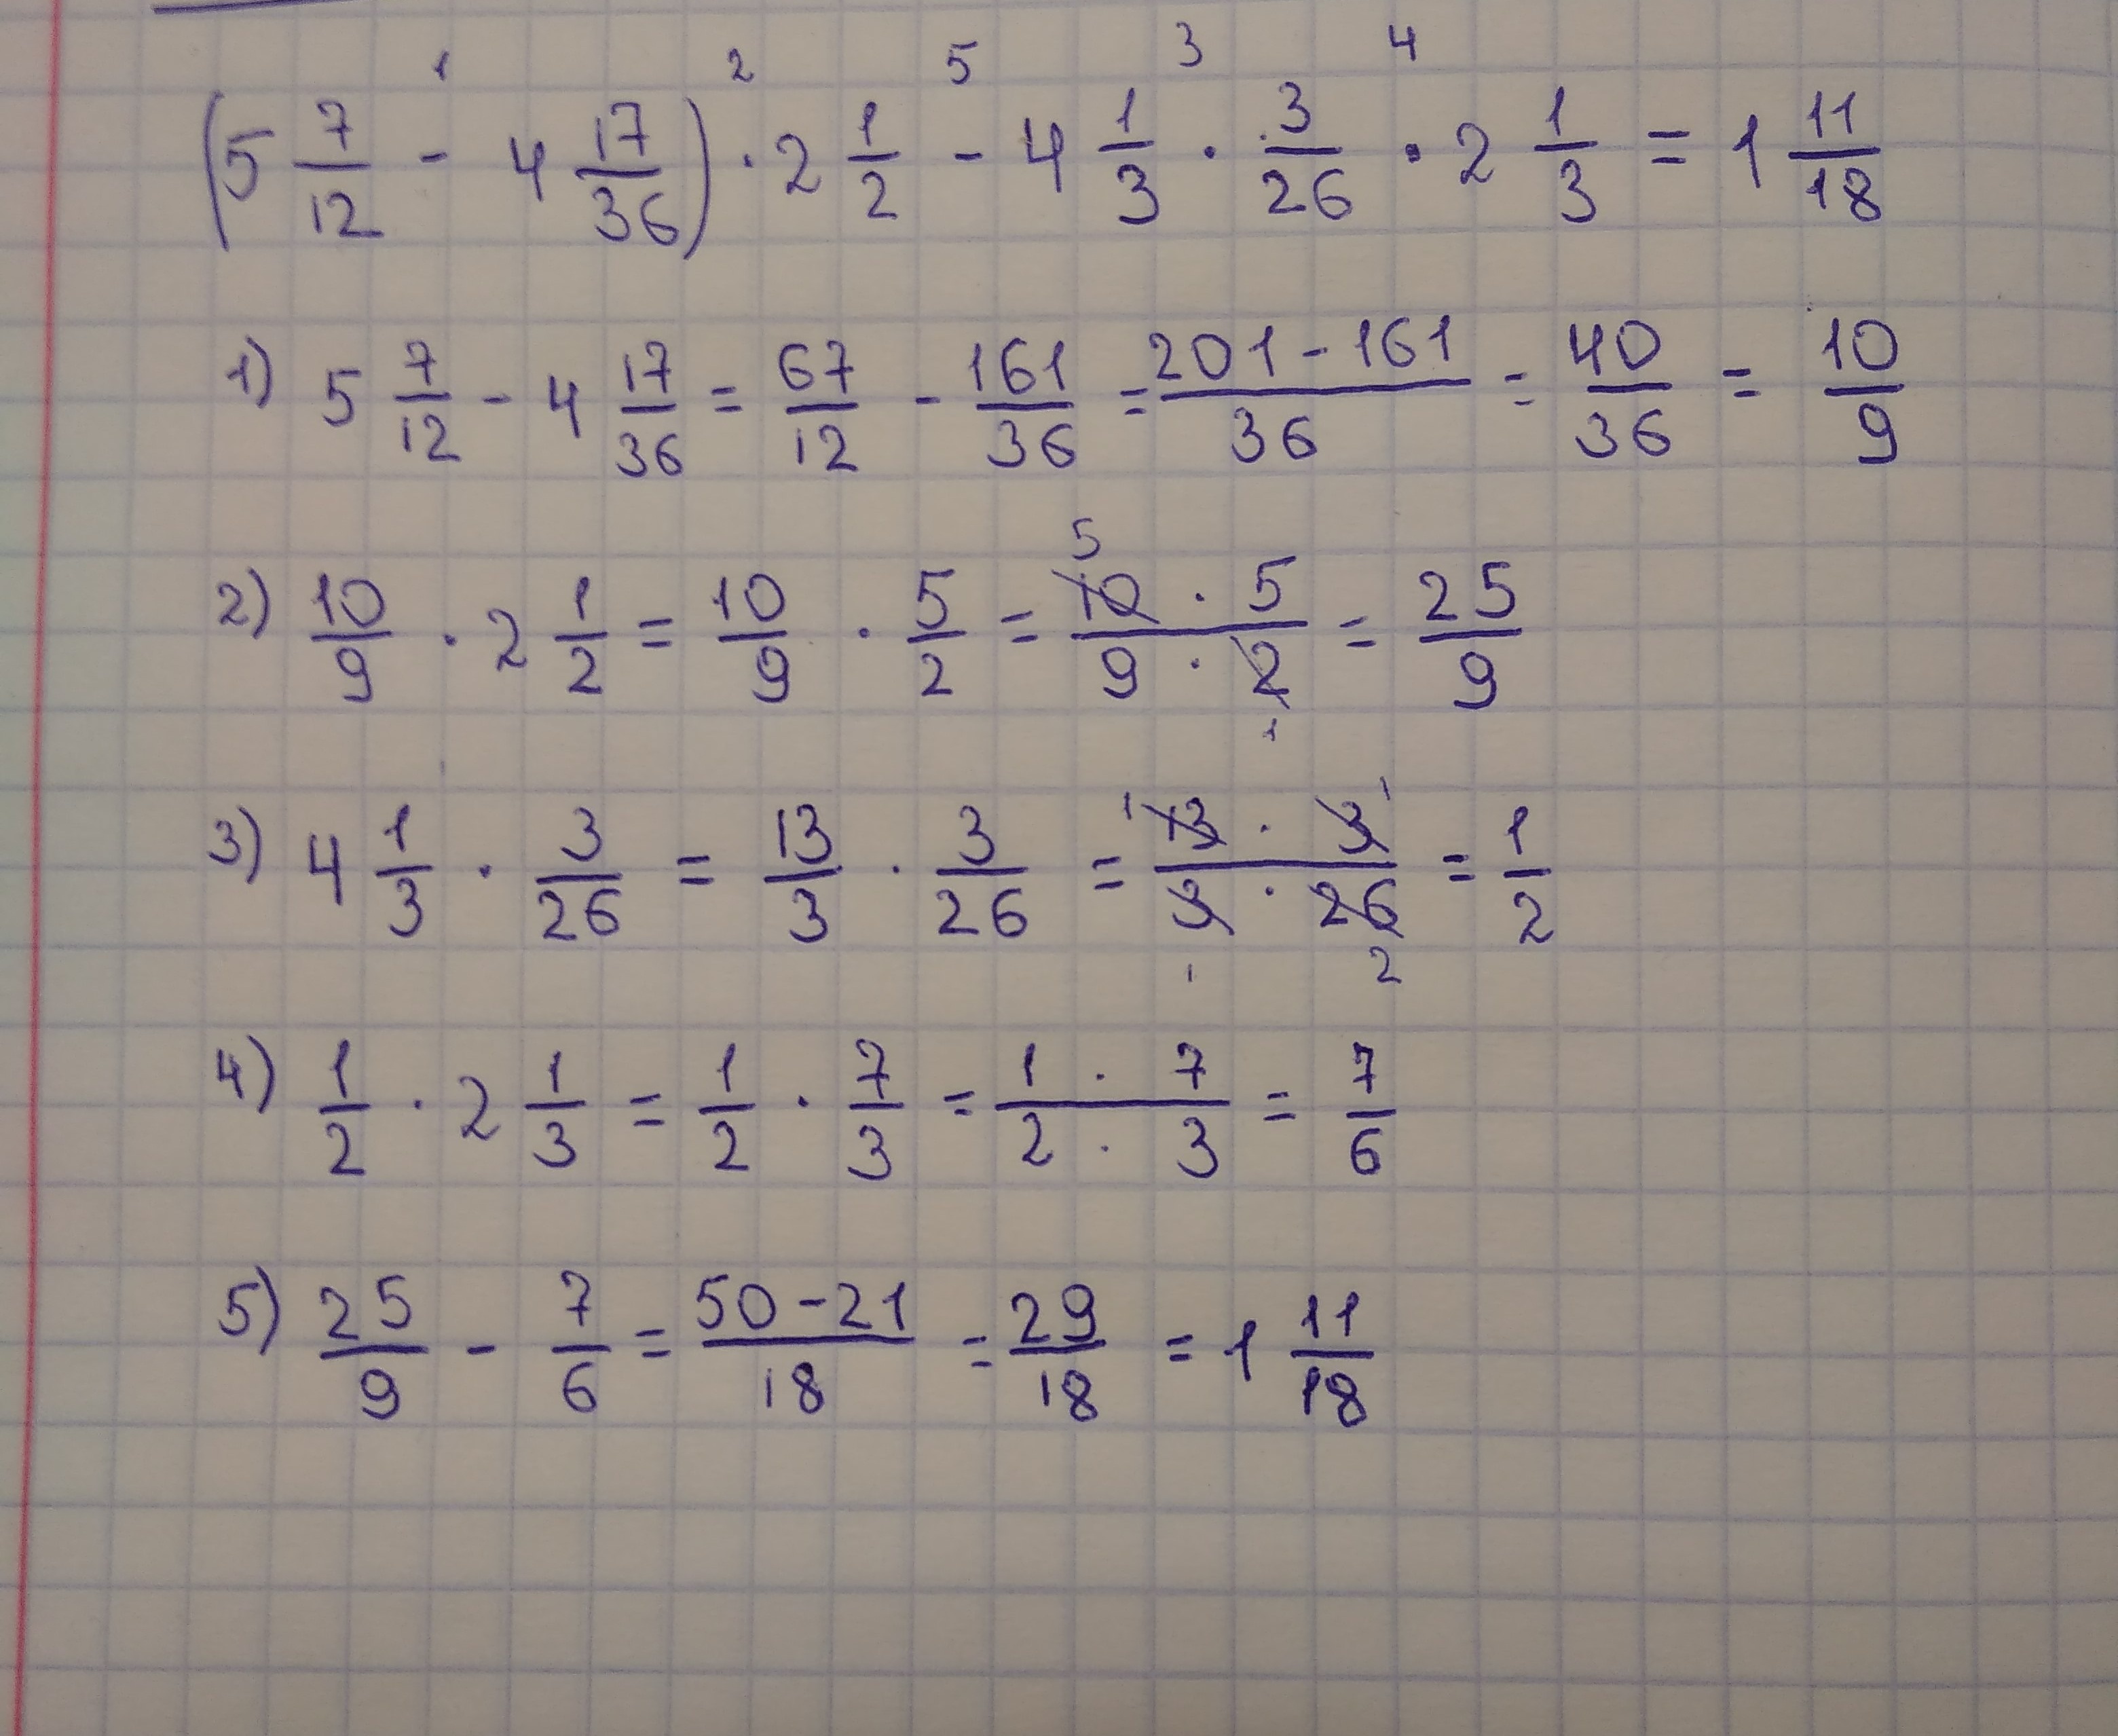 1 2 5 3 4
(5 7/12 - 4 17/36) · 2 1/2 - 4 1/3 · 3/26 · 2 1/3 = 1 11/18
1) 5 7/12 - 4 17/36 = 67/12 - 161/36 = 201-161/36 = 40/36 = 10/9
5
2) 10/9 · 2 1/2 = 10/9 · 5/2 = 10 · 5/9 · 2 = 25/9
1
1 1
3) 4 1/3 · 3/26 = 13/3 · 3/26 = 13 · 3/3 · 26 = 1/2
1 2
4) 1/2 · 2 1/3 = 1/2 · 7/3 = 1 · 7/2 · 3 = 7/6
5) 25/9 - 7/6 = 50-21/18 = 29/18 = 1 11/18